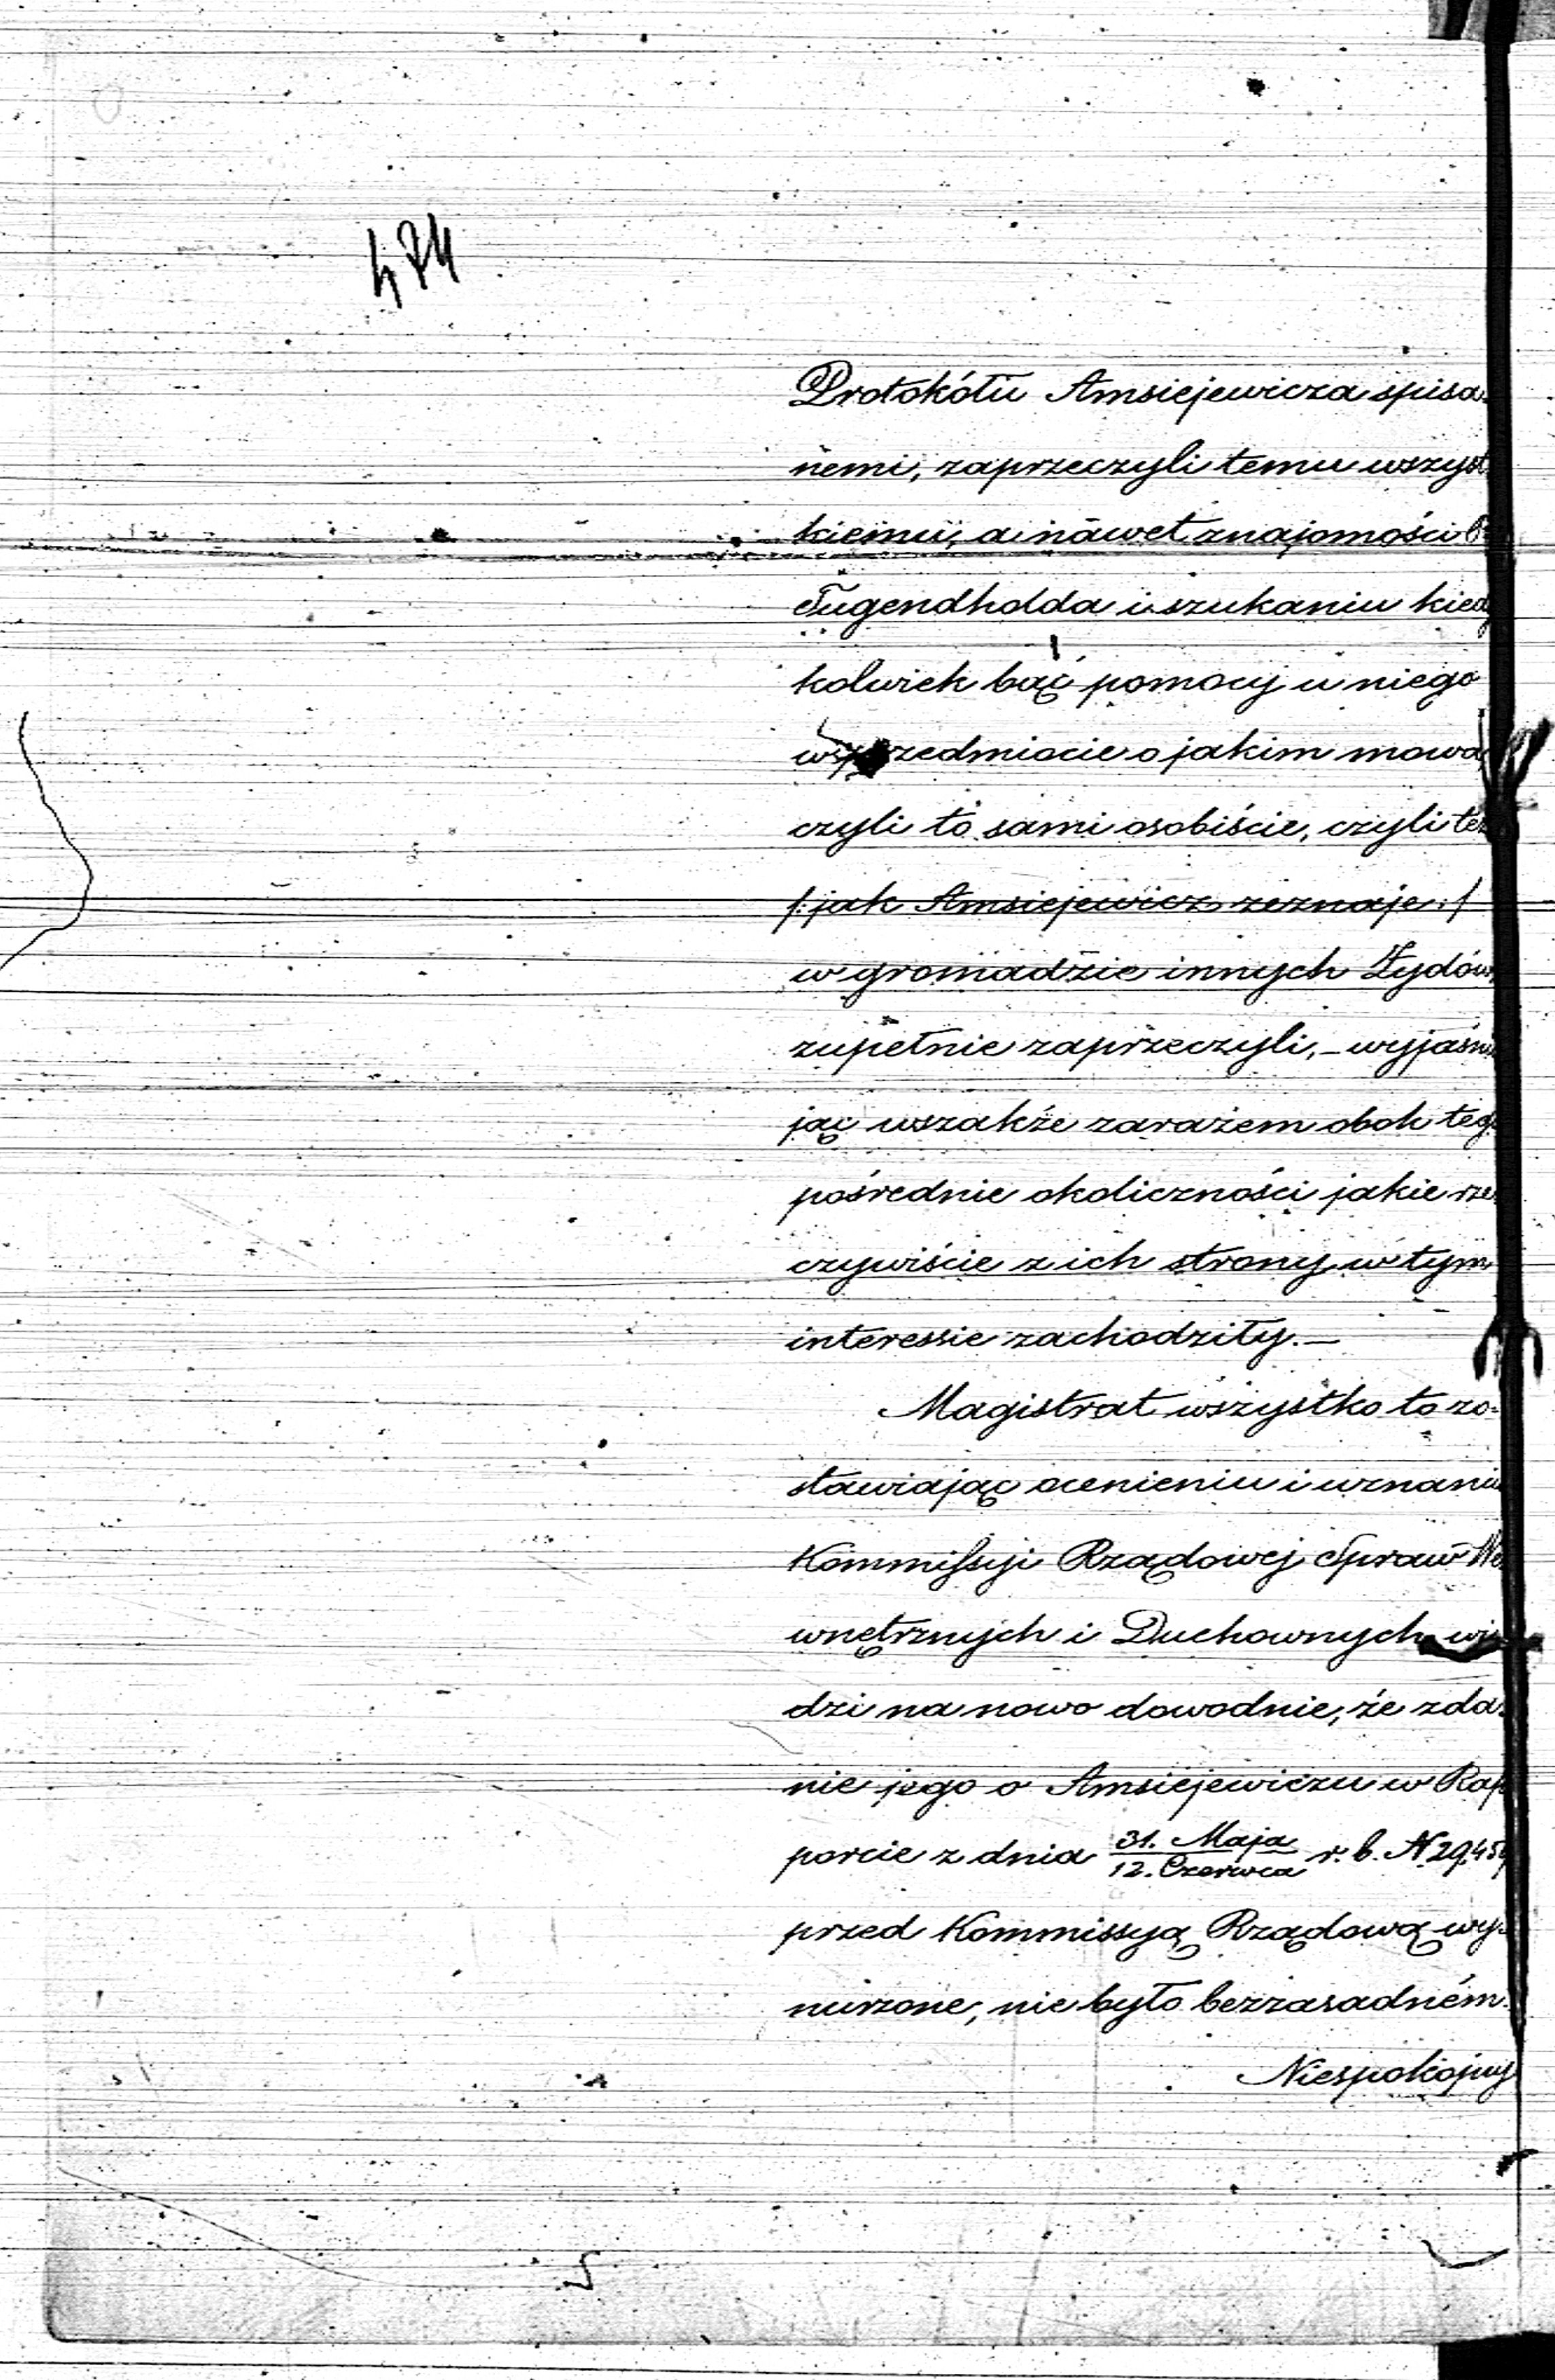 474
Protokółu Amsiejewicza spisa-
nemi, zaprzeczyli temu wszyst-
kiemu, a nawet znajomości
Tugendholda i szukaniu kiedy
kolwiek bąć pomocy u niego
w przedmiocie o jakim mowa,
czyli to sami osobiście, czyli też
/: jak Amsiejewicz zeznaje :/
w gromadzie innych Żydów,
zupełnie zaprzeczyli, – wyjaśnia
jąc wszakże zarazem obok tego
pośrednie okoliczności jakie rze
czywiście z ich strony w tym
interessie zachodziły. –
Magistrat wszystko to zo-
stawiając ocenieniu i uznaniu
Kommissyi Rządowej Spraw We
wnętrznych i Duchownych wi
dzi na nowo dowodnie, że zda-
nie jego o Amsiejewiczu w Rap
porcie z dnia 31. Maja / 12. Czerwca r. b. N
przed Kommissyą Rządową wy-
nurzone, nie było bezzasadném.
Niespokojny